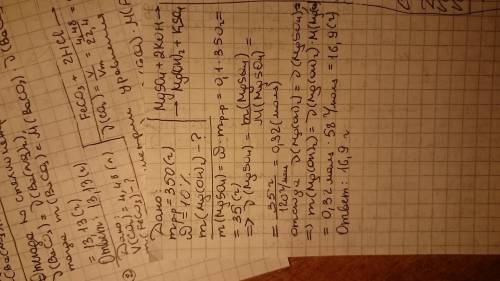 Отсюда по стехиометр
ν(BaCO₃) = ν(Ba(NO₃)₂)
тогда m(BaCO₃) = M(BaCO₃)
= 13,13 (г)
Ответ: 13,13 (г)
② Дано:
V(CO₂) = 4,48 (л)
m(FeCO₃) - ?
FeCO₃ + 2HCl →
ν(CO₂) = V/Vm = 4,48/22,4 =
уравнения
Дано:
mр-р = 350 (г)
ω = 10%
m(Mg(OH)₂) - ?
MgSO₄ + 2KOH →
→ Mg(OH)₂ + K₂SO₄
m(MgSO₄) = ω · mр-р = 0,1 · 350г =
= 35 (г)
=> ν(MgSO₄) = m(MgSO₄)/M(MgSO₄) =
= 35 г/120 г/моль = 0,32 (моль)
отсюда ν(Mg(OH)₂) = ν(MgSO₄) =
=> m(Mg(OH)₂) = ν(Mg(OH)₂) · M(Mg(OH)₂)
= 0,32 моль · 58 г/моль = 16,9 (г)
Ответ: 16,9 г